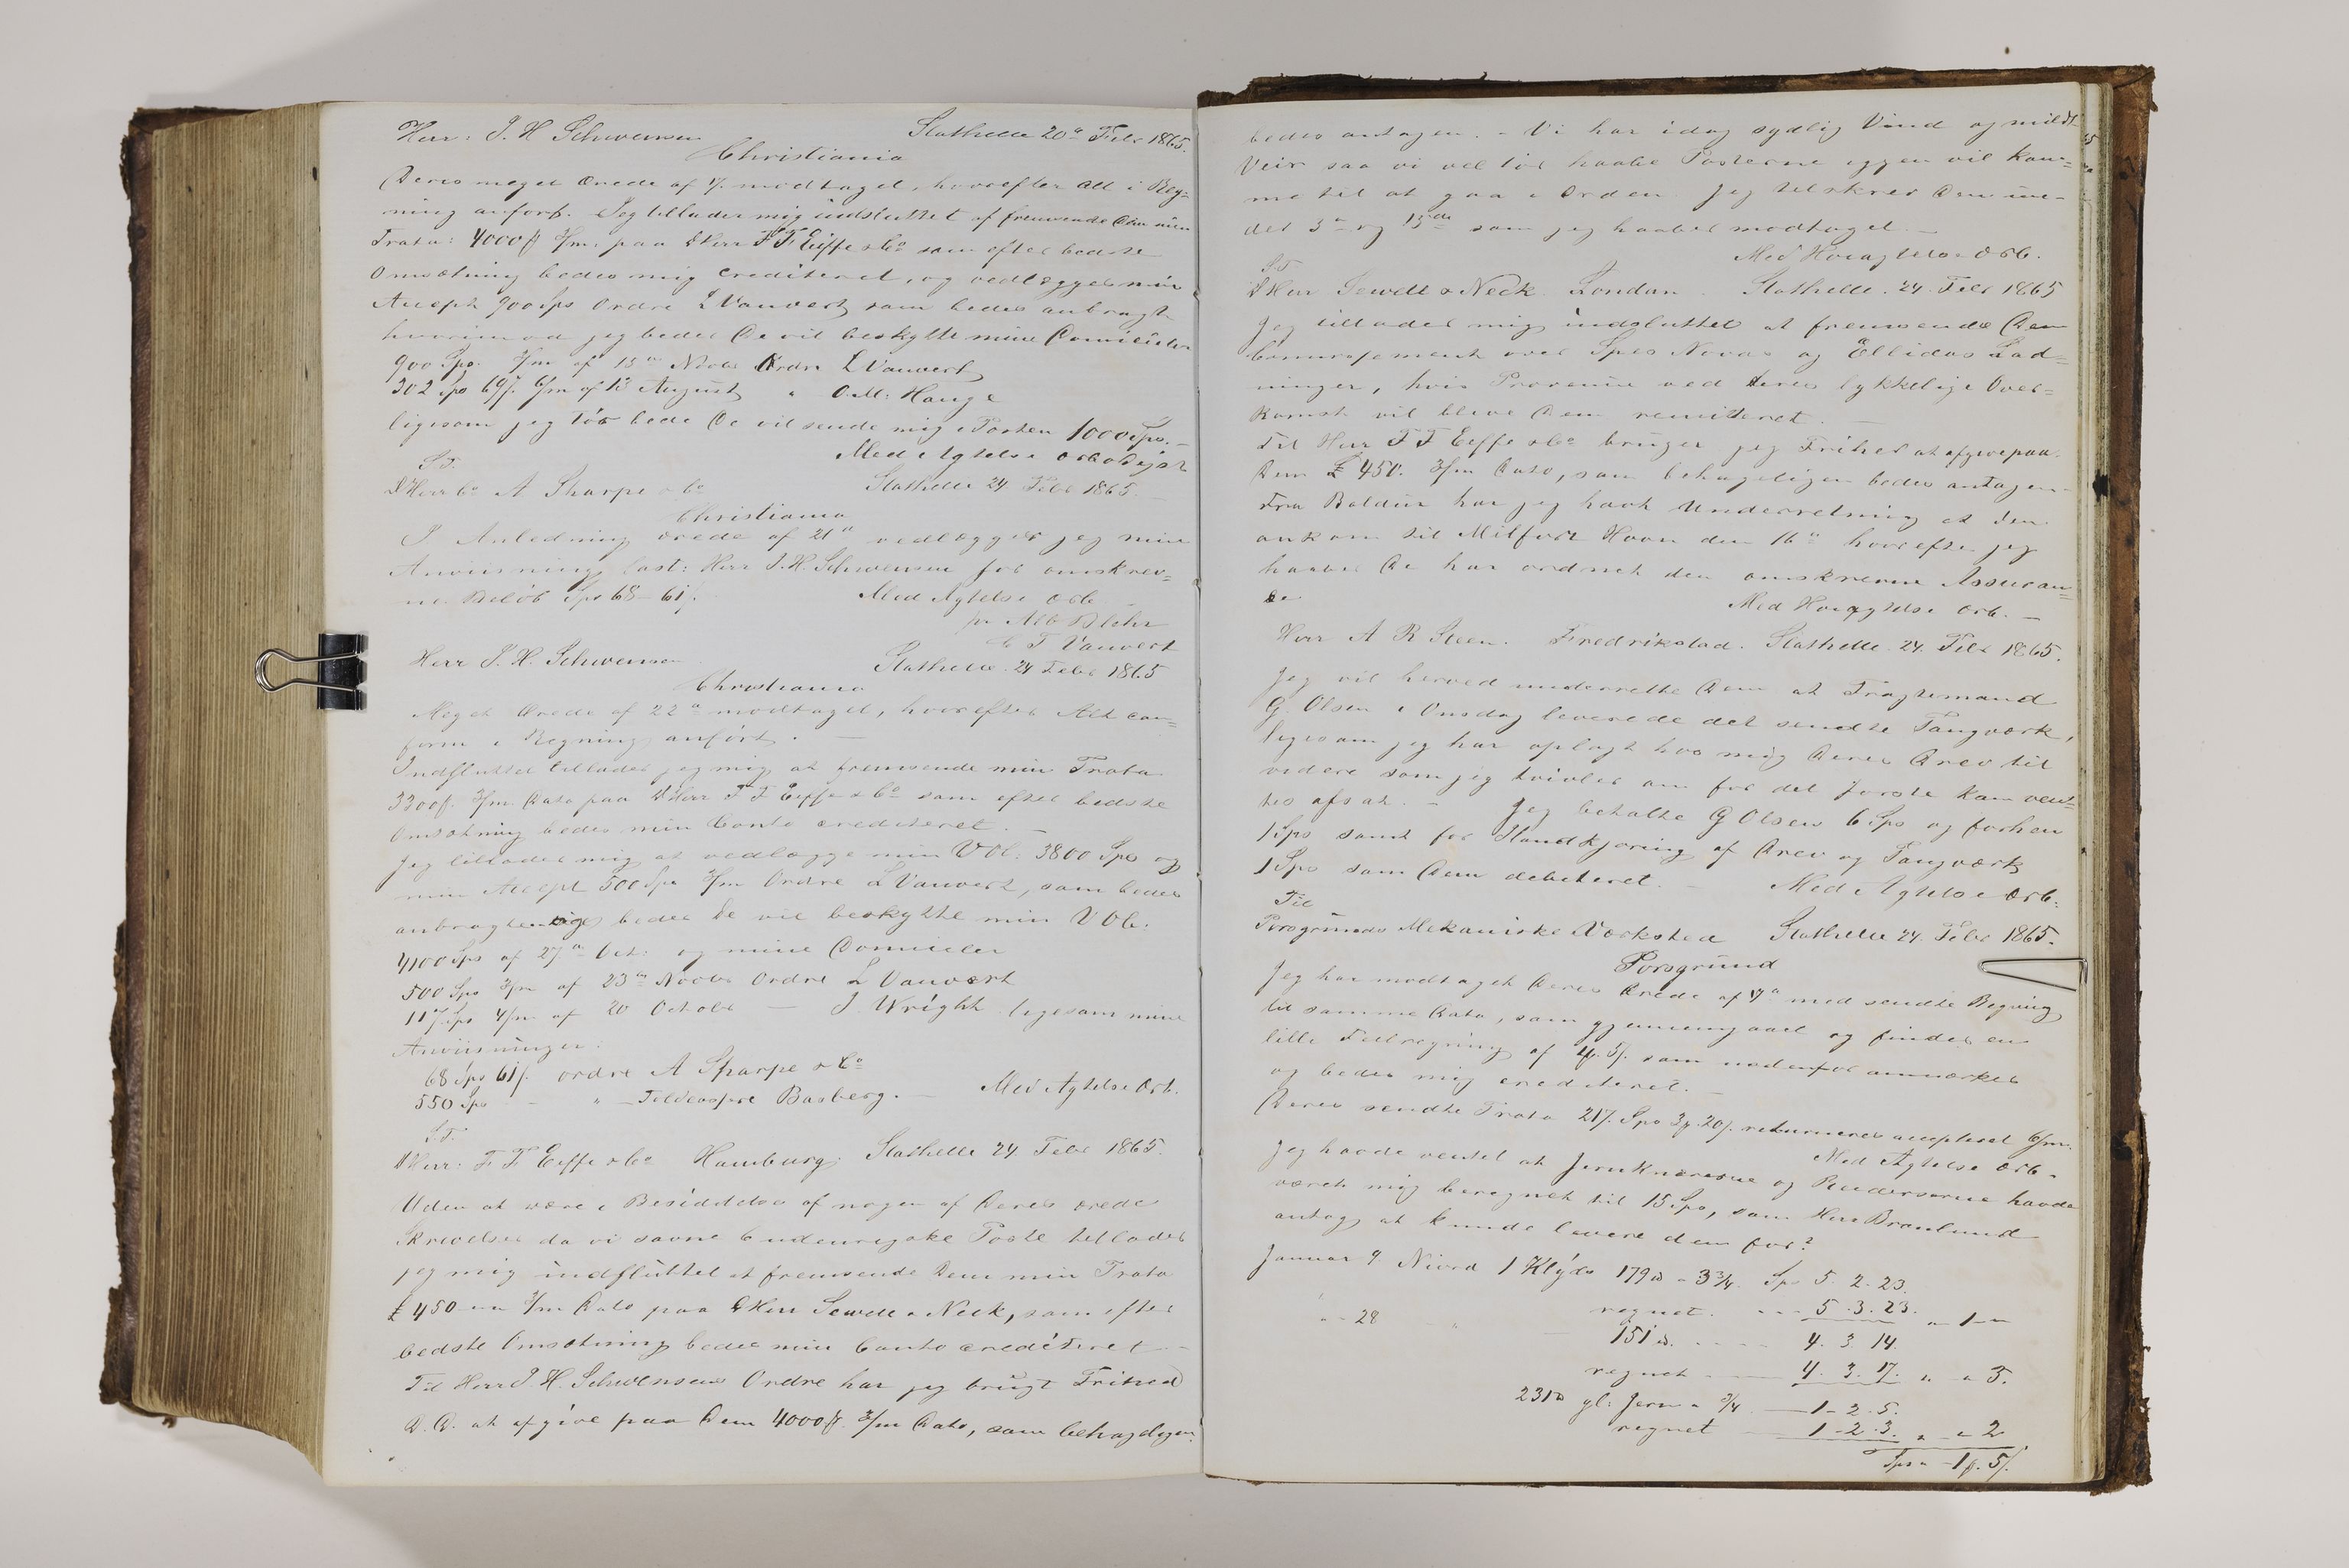 Herr: J. H Schwensen Stathelle 20de Febr 1865.
Christiania
Deres meget Ærede af 17. modtaget, hvorefter Alt i Reg=
ning anført. Jeg tillader mig indsluttet at fremsende Dem min
Trata: 4000 ₰ 3/m. paa DHerr F F Eiffe & Co som efter bedste
Omsætning bedes mig crediteret, og vedlægges min
Accept 900 Sps Ordre L Vauvert som bedes anbragt
hvorimod jeg beder De vil beskytte mine Domicieler
900 Sps. 3/m af 15de Novbr Ordre L Vauvert
302 Sps 69 ſ. 6/m af 13 August " O. M: Hauge
ligesom jeg tør bede De vil sende mig i Posten 1000 Sps. –
Med Agtelse ærbødigst
S.T.
DHerr Co A Sharpe & Co Stathelle 24 Febr 1865.
Christiania
I Anledning ærede af 21de vedlægger jeg min
Anviisning last: Herr J. H. Schwensen for omskrev=
ne Beløb Sps 68 – 61 ſ. Med Agtelse ærb
pr Alb Blehr
L T Vauvert
Herr J. H. Schwensen Stathelle 24 Febr 1865
Christiania
Meget Ærede af 22de modtaget, hvorefter Alt con=
form i Regning anført. —
Indsluttet tillader jeg mig at fremsende min Trata
3300 ₰. 3/m Dato paa DHerr F F Eiffe & Co som efter bedste
Omsætning bedes min Conto crediteret. —
Jeg tillader mig at vedlægge min VOb: 3800 Sps og
min Accept 500 Sps 3/m Ordre L Vauvert, som bedes
anbragte beder De vil beskytte min VOb.
4100 Sps af 27de Oct: og mine Domicieler
500 Sps 3/m af 23de Novbr Ordre L Vauvert
117 Sps 4/m af 20 Octobr — J. Wright ligesom mine
Anviisninger:
68 Sps 61 ſ. ordre A Sharpe & Co
550 Sps – " – Basberg. — Med Agtelse Ærb.
S.T.
DHerr: F. F Eiffe & Co Hamburg. Stathelle 24 Febr 1865.
Uden at være i Besiddelse af nogen af Deres ærede
Skrivelser da vi savne 6 udenrigske Poste tillader
jeg mig indsluttet at fremsende Dem min Trata
£ 450 3/m Dato paa DHerr Sewell & Neck, som efter
bedste Omsætning bedes min Conto crediteret –
Til Herr J H. Schwensens Ordre har jeg brugt Frihed
D. D. at afgive paa Dem 4000 ₰. 3/m Dato, som behageligen
bedes antagen. – Vi har idag sydlig Vind og mildt
Veir saa vi vel tør haabe Posterne iggjen vil kom=
me til at gaa i Orden. Jeg tilskrev Dem un-
det 3de og 15de som jeg haaber modtaget. –
Med Høiagtelse ærb.
S.T.
DHerr Sewell & Neck London. Stathelle. 24. Febr 1865
Jeg tillader mig indsluttet at fremsende Dem
Connossement over Spes Novas og Ellidas Lad=
ninger, hvis Provenue ved deres lykkelige Over=
komst vil blive Dem remitteret. —
Til Herr F F Eiffe & Co bruger jeg Frihed at afgive paa
Dem £ 450. 3/m Dato, som behageligen bedes antagen –
Fra Baldur har jeg havt Underretning at den
ankom til Milfort Havn den 16de hvorefter jeg
haaber De har ordnet den omskrevne Assuran=
ce. Med Høiagtelse ærb. —
Herr A R Steen. Fredrikstad. Stathelle. 24. Febr 1865.
Jeg vil herved underrette Dem at Fragtemand
G. Olsen i Onsdag leverede det sendte Tangværk,
ligesom jeg har oplagt hos mig Deres Drev til
videre som jeg tvivler om for det første kan vent=
tes afsat. – Jeg betalte G Olsen 6 Sps og forhen
1 Sps samt for Haandkjøring af Drev og Tangværk
1 Sps som Dem debiteret. – Med Agtelse ærb.
Til
Porsgrunds Mekaniske Værksted Stathelle 24. Febr 1865.
Porsgrund
Jeg har modtaget Deres Ærede af 17de med sendte Regning
til samme Dato, som gjennemgaaet og finder en
lille Feilregning af 1 ₰. 5 ſ. som nedenfor anmærkes
og bedes mig crediteret. –
Deres sendte Trata 217. Sps 3 ₰. 20 ſ. returneres accepteret 6/m.
Med Agtelse ærb.
Jeg havde ventet at Jernknæerne og havde
været mig beregnet til 15 Sps, som Herr Braulund
antog at kunde levere dem for?
Januar 9. Niord 1 Klyds 179 ℔ a 3 3/4. Sps 5. 2. 23.
regnet. - - - 5. 3. 23. " 1 –
" - 28 " — 151 ℔. - - - - 4. 3 14.
regnet — 4. 3. 17. " " 3.
231 ℔ gl: Jern a 3/4 — 1 – 2. 5.
regnet — 1 – 2. 3. " " 2
Sps " – 1 ₰. 5 ſ.